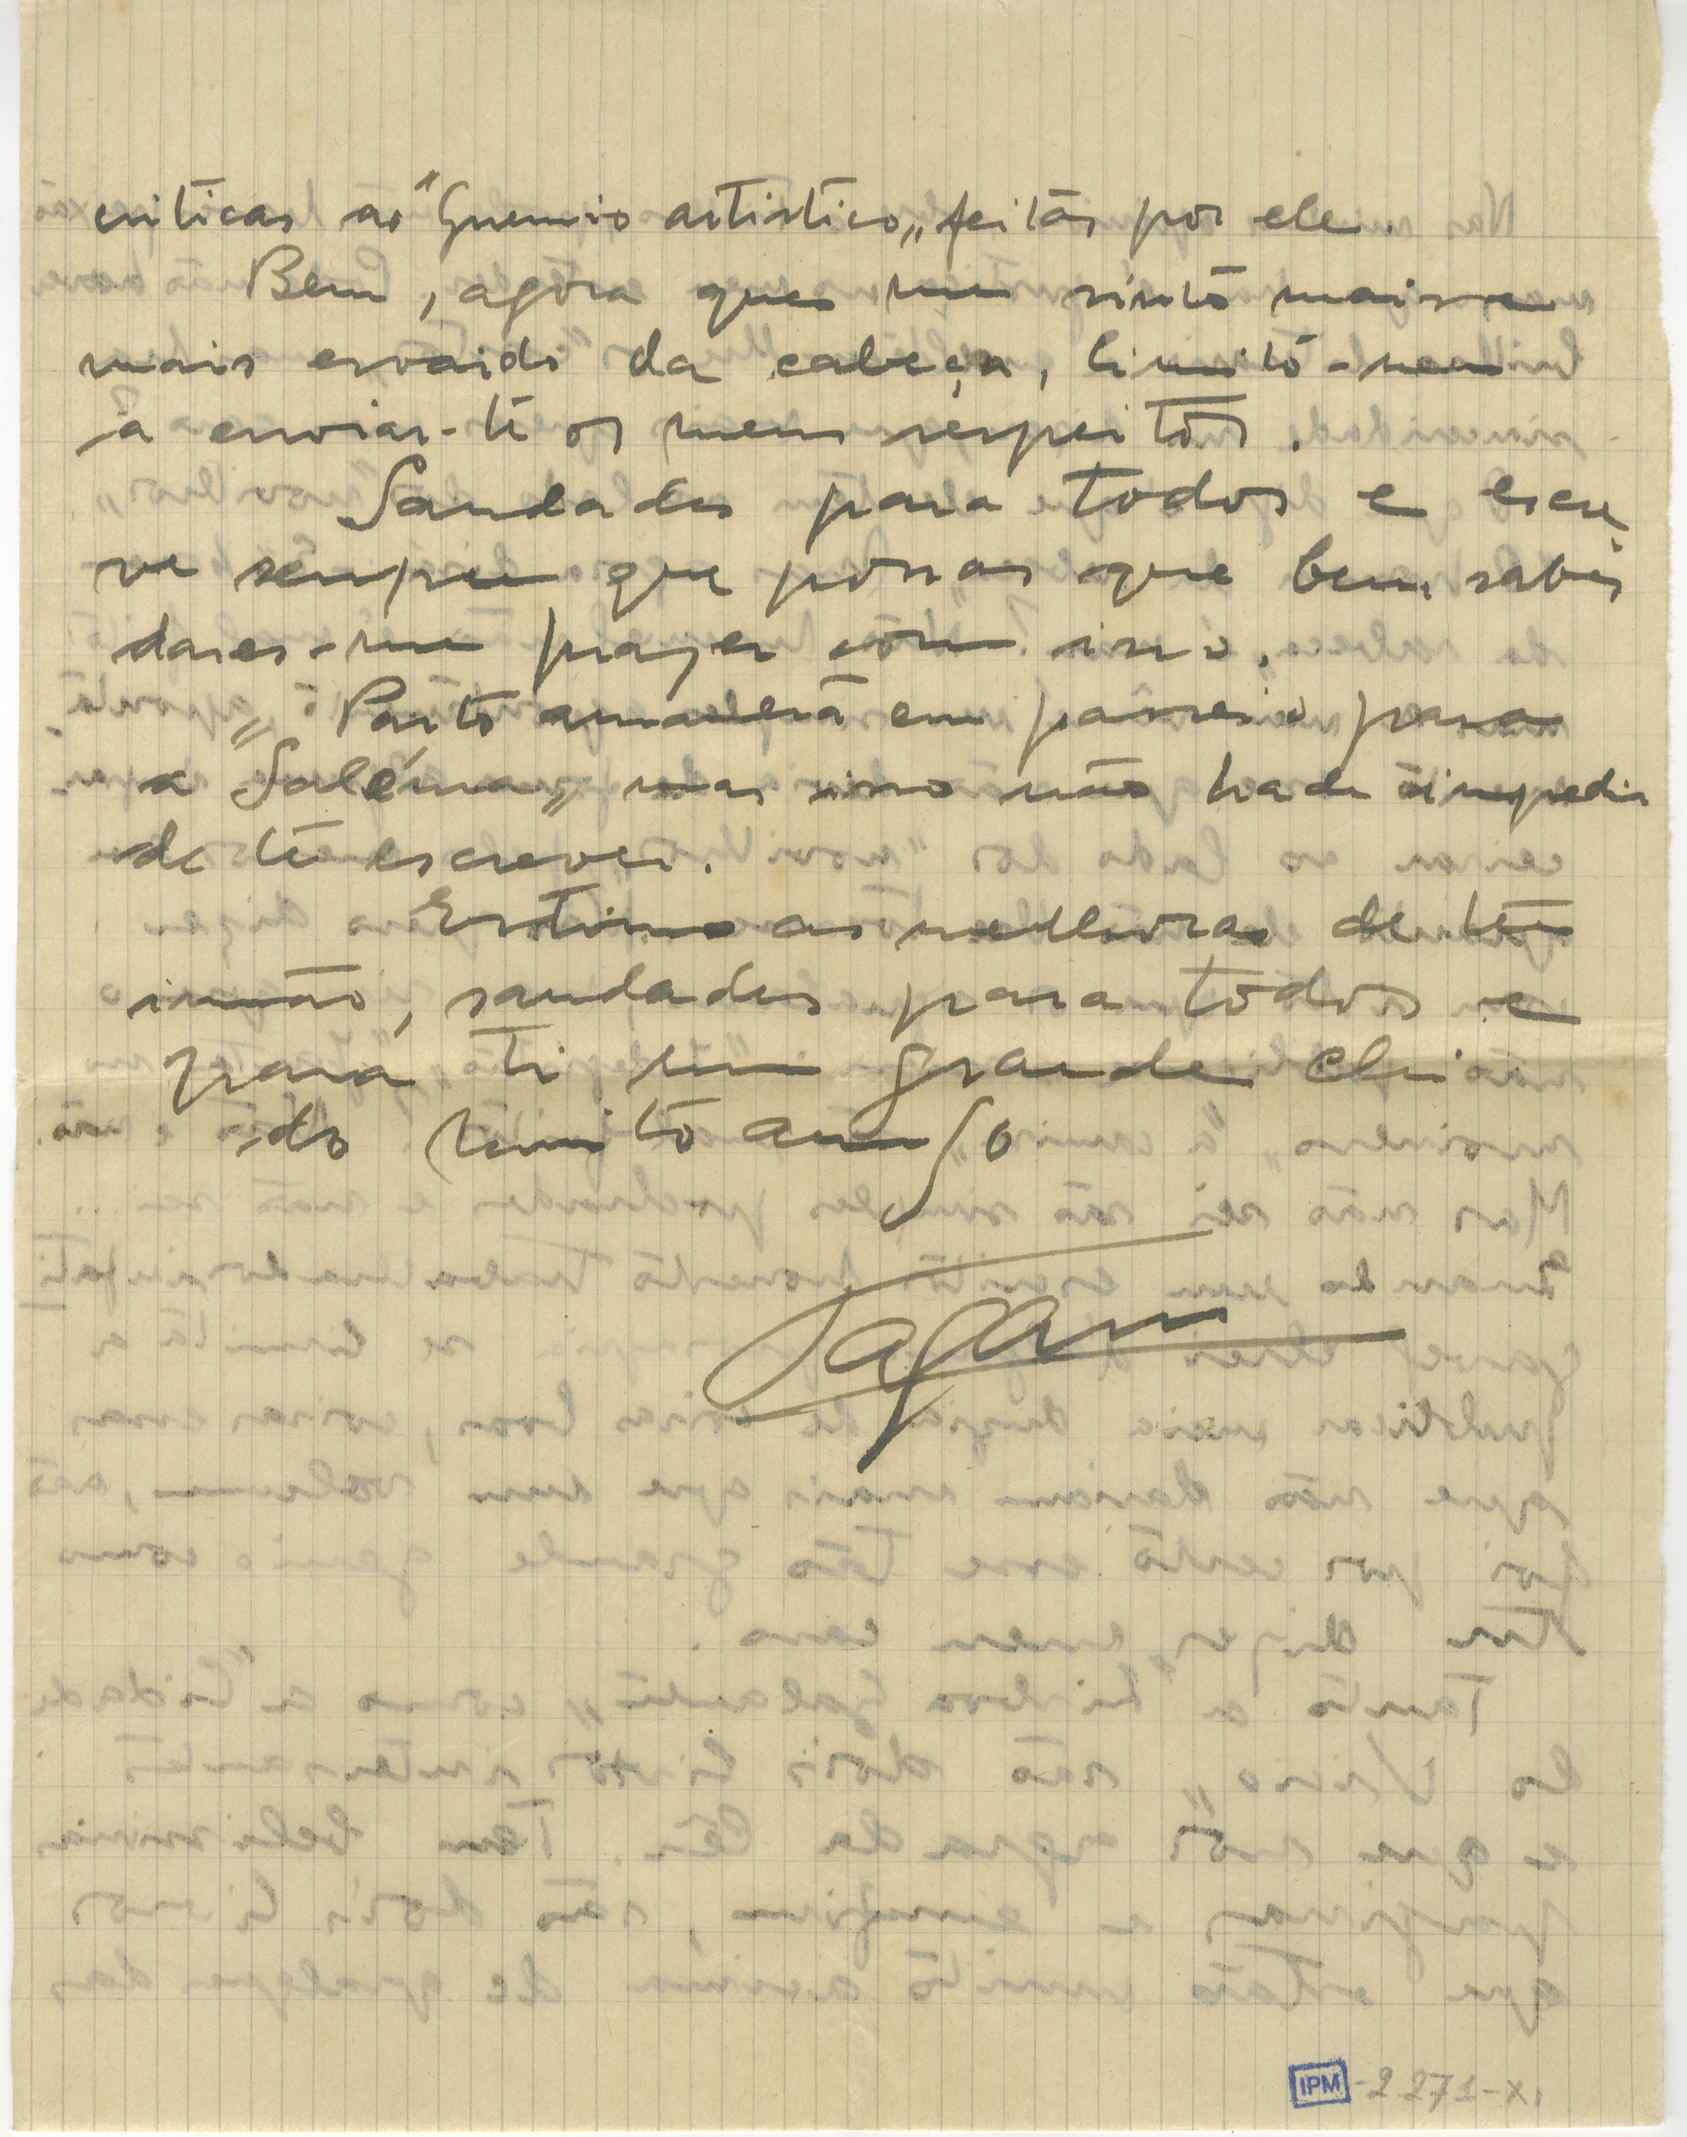 criticas ao "Gremio artistico„ feitas por ele.
Bem, agora que me sinto mais e
mais esvaido da cabeça, limito-me
a enviar-te os meus respeitos.
Saudades para todos e escre
ve sempre que possas que bem sabes
dares-me prazer com isso.
Parto amanhã em passeio para
a "Saléma„ mas isso não hade impedir
de te escrever.
Estimo as melhoras de teu
irmão, saudades para todos e
para ti um grande chi
do muito amigo
IPM -2271-XI